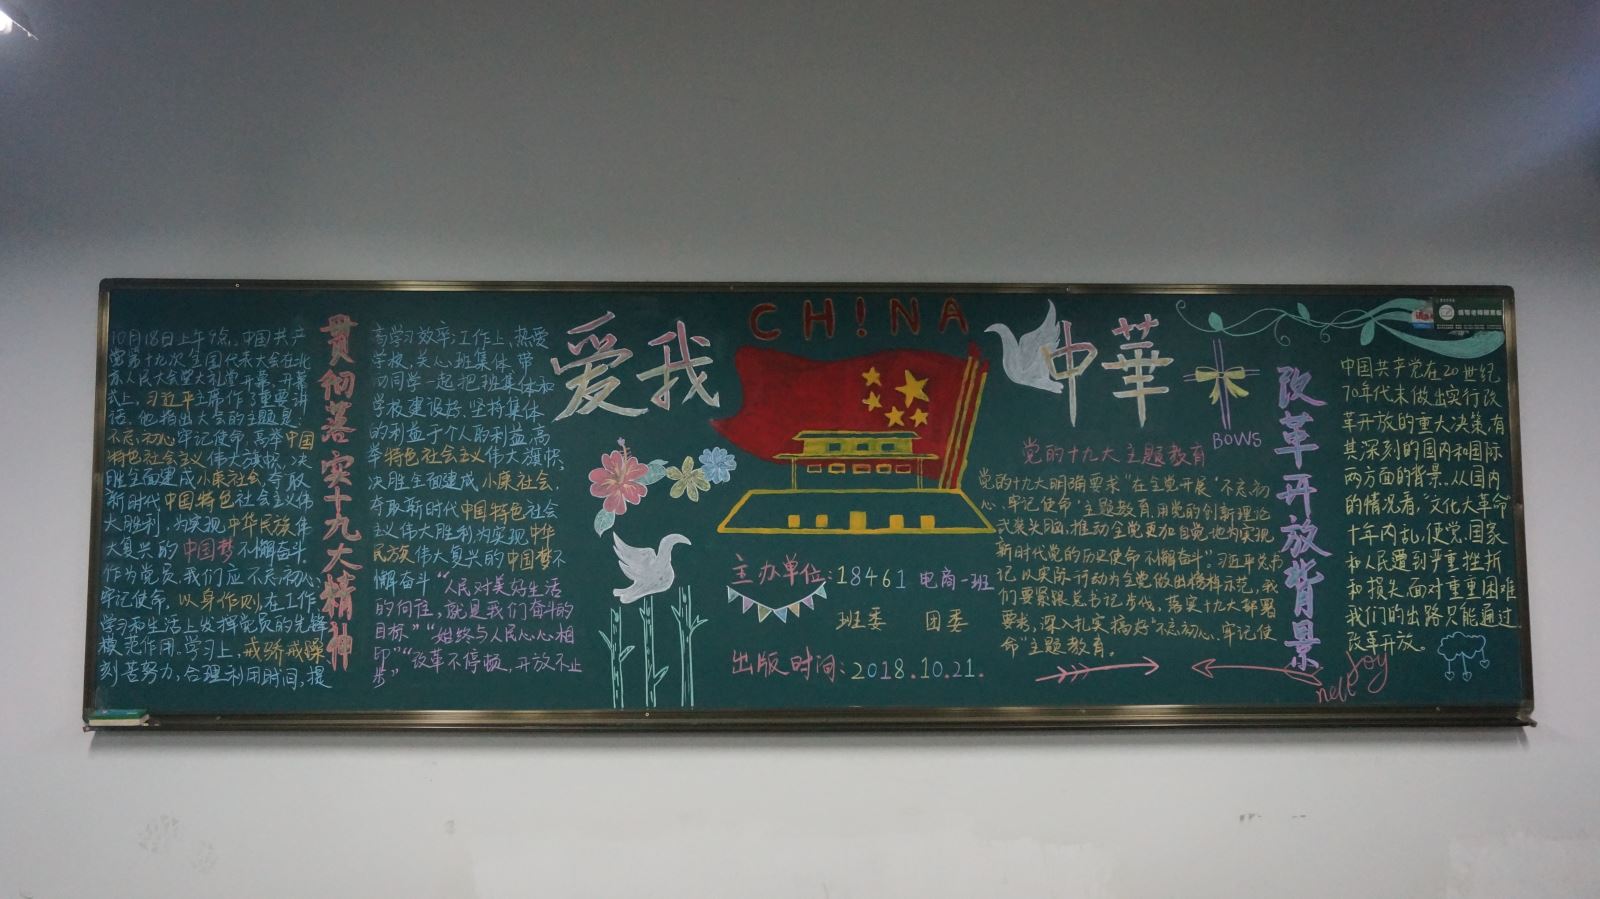 10月18日上午9点,中国共产
党第十九次全国代表大会在北
京人民大会堂大礼堂开幕,开幕
式上,习近平主席作了重要讲
话,他指出大会的主题是:
不忘初心牢记使命,高举中国
特色社会主义伟大旗帜,决
胜全面建成小康社会,夺取
新时代中国特色社会主义伟
大胜利,为实现中华民族伟
大复兴的中国梦不懈奋斗
作为党员,我们应不忘初心、
牢记使命,以身作则,在工作、
学习和生活上发挥党员的先锋
模范作用.学习上,戒骄戒躁
刻苦努力,合理利用时间,提
贯彻落实十九大精神
高学习效率;工作上,热爱
学校,关心班集体,带
动同学一起把班集体和
学校建设好,坚持集体
的利益于个人的利益,高
举特色社会主义伟大旗帜、
决胜全面建成小康社会,
夺取新时代中国特色社会
主义伟大胜利为实现中华
民族伟大复兴的中国梦不
懈奋斗“人民对美好生活
的向往,就是我们奋斗的
目标”“始终与人民心心相
印”“改革不停顿,开放不止
步”
爱我
CH!NA
中華
主办单位:18461 电商一班
班委 团委
出版时间:2018.10.21.
BOWS
党的十九大主题教育
党的十九大明确要求“在全党开展‘不忘初
心、牢记使命’主题教育,用党的创新理论
武装头脑,推动全党更加自觉地为实现
新时代党的历史使命不懈奋斗”。习近平总书
记以实际行动为全党做出榜样示范,我
们要紧跟总书记步伐,落实十九大部署
要求,深入扎实搞好“不忘初心、牢记使
命”主题教育。
改革开放背景
中国共产党在20世纪
70年代末做出实行改
革开放的重大决策,有
其深刻的国内和国际
两方面的背景.从国内
的情况看,“文化大革命”
十年内乱,使党、国家
和人民遭到严重挫折
和损失.面对重重困难
我们的出路只能通过
改革开放。
Joy